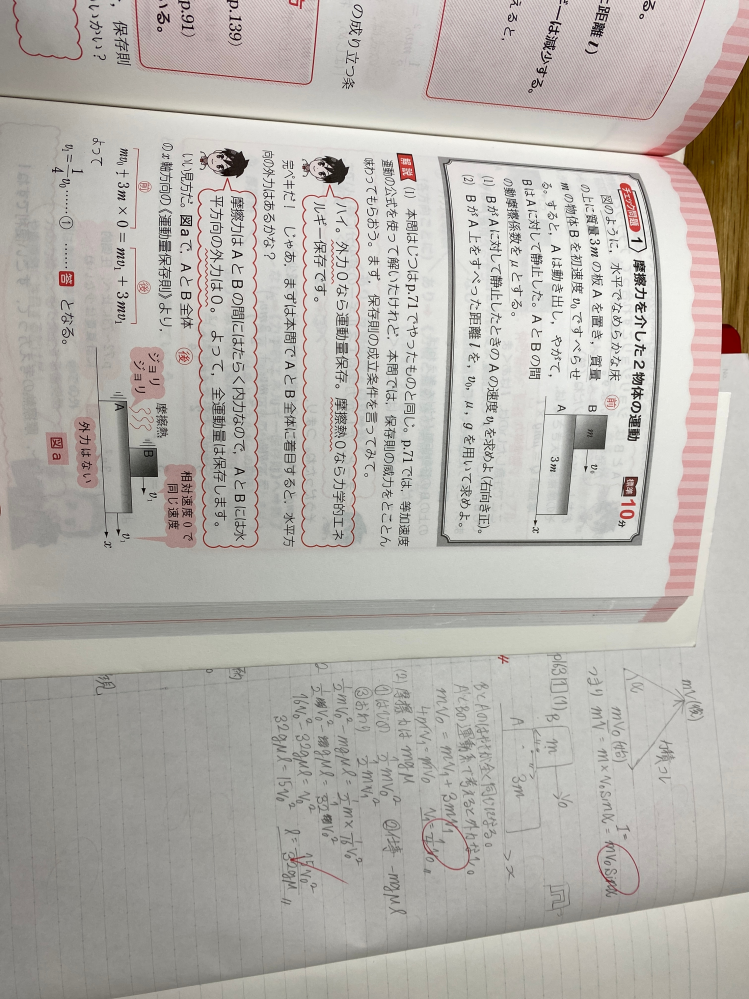 る。
に距離 l)
えると,
ーは減少する。
の成り立つ条
p.139)
p.91)
いる。
, 保存則
いかい?
チェック問題 1 摩擦力を介した2物体の運動 標準 10分
図のように, 水平でなめらかな床
の上に質量3mの板Aを置き, 質量
mの物体Bを初速度v₀ですべらせ
る。すると, Aは動き出し, やがて,
BはAに対して静止した。AとBの間
の動摩擦係数をμとする。
(1) BがAに対して静止したときのAの速度v₁を求めよ(右向き正)。
(2) BがA上をすべった距離lを, v₀, μ, gを用いて求めよ。
前
B m v₀
A 3m
x
解説 (1) 本問はじつはp.71でやったものと同じ。p.71では, 等加速度
運動の公式を使って解いたけれど, 本問では, 保存則の威力をとことん
味わってもらおう。まず, 保存則の成立条件を言ってみて。
ハイ。外力0なら運動量保存。摩擦熱0なら力学的エネ
ルギー保存です。
完ペキだ! じゃあ, まずは本問でAとB全体に着目すると, 水平方
向の外力はあるかな?
摩擦力はAとBの間にはたらく内力なので, AとBには水
平方向の外力は0。よって, 全運動量は保存します。
いい見方だ。図aで, AとB全体
のx軸方向の《運動量保存則》より,
前 後
mv₀ + 3m × 0 = mv₁ + 3mv₁
よって
v₁ = 1/4 v₀ ……① …… 答 となる。
後
相対速度0で
同じ速度
摩擦熱
ジョリ
ジョリ
B v₁
A v₁
x
外力はない
図a
mV(後)
mV₀(前)
α
つまり mV = m×V₀sinα
I = mV₀sinα
p163 1 (1)
B m V₀
A 3m
x
mV₀ = mV₁ + 3mV₁
4mV₁ = mV₀
(2) 摩擦力は mgμ
①はじめ 1/2mV₀² ②仕事 -mgμl
③おわり 1/2mV₁²
1/2mV₀² - mgμl = 1/2m×1/16V₀²
16V₀² - 32gμl = V₀²
32gμl = 15V₀²
l = 15V₀²/32gμ
現